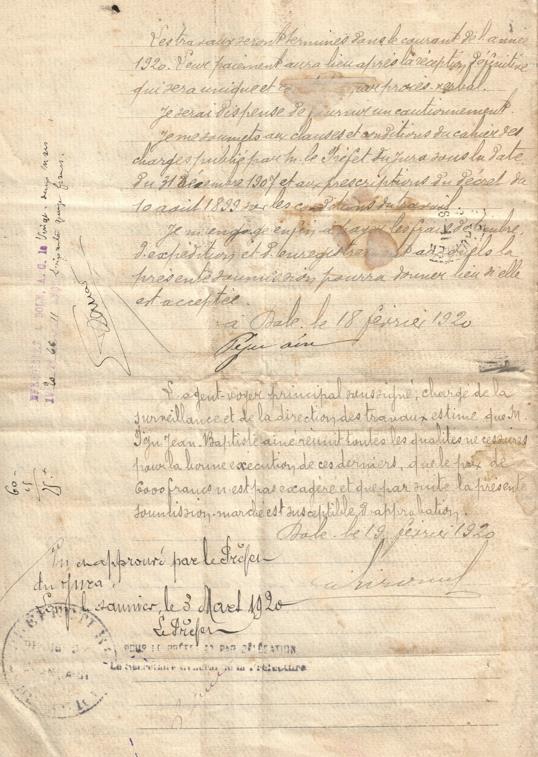 Les travaux seront terminés dans le courant de l'année
1920. Leur paiement aura lieu après la réception définitive
qui sera unique et par procès verbal.
Je serai dispensé de fournir un cautionnement
Je me soumets aux clauses et conditions du cahier des
charges publié par M. le Préfet du Jura sous la date
du 31 Décembre 1907 et aux prescriptions du décret du
10 août 1899 sur les conditions du travail.
Je m'engage enfin à payer les frais de timbre,
d'expédition et d'enregistrement la
présente soumission pourra donner lieu si elle
est acceptée.
à Dole, le 18 février 1920
aîné
L'agent-voyer principal soussigné, chargé de la
surveillance et de la direction des travaux estime que M.
Jean-Baptiste aîné réunit toutes les qualités nécessaires
pour la bonne exécution de ces derniers, que le prix de
6000 francs n'est pas exagéré et que par suite la présente
soumission-marché est susceptible d'approbation.
Dole le 19 février 1920
Vu et approuvé par le Préfet
du Jura.
Lons-le-Saunier, le 3 Mars 1920
Le Préfet
Le Secrétaire Général de la Préfecture
PREFECTURE
DOLE, A. C. le
60